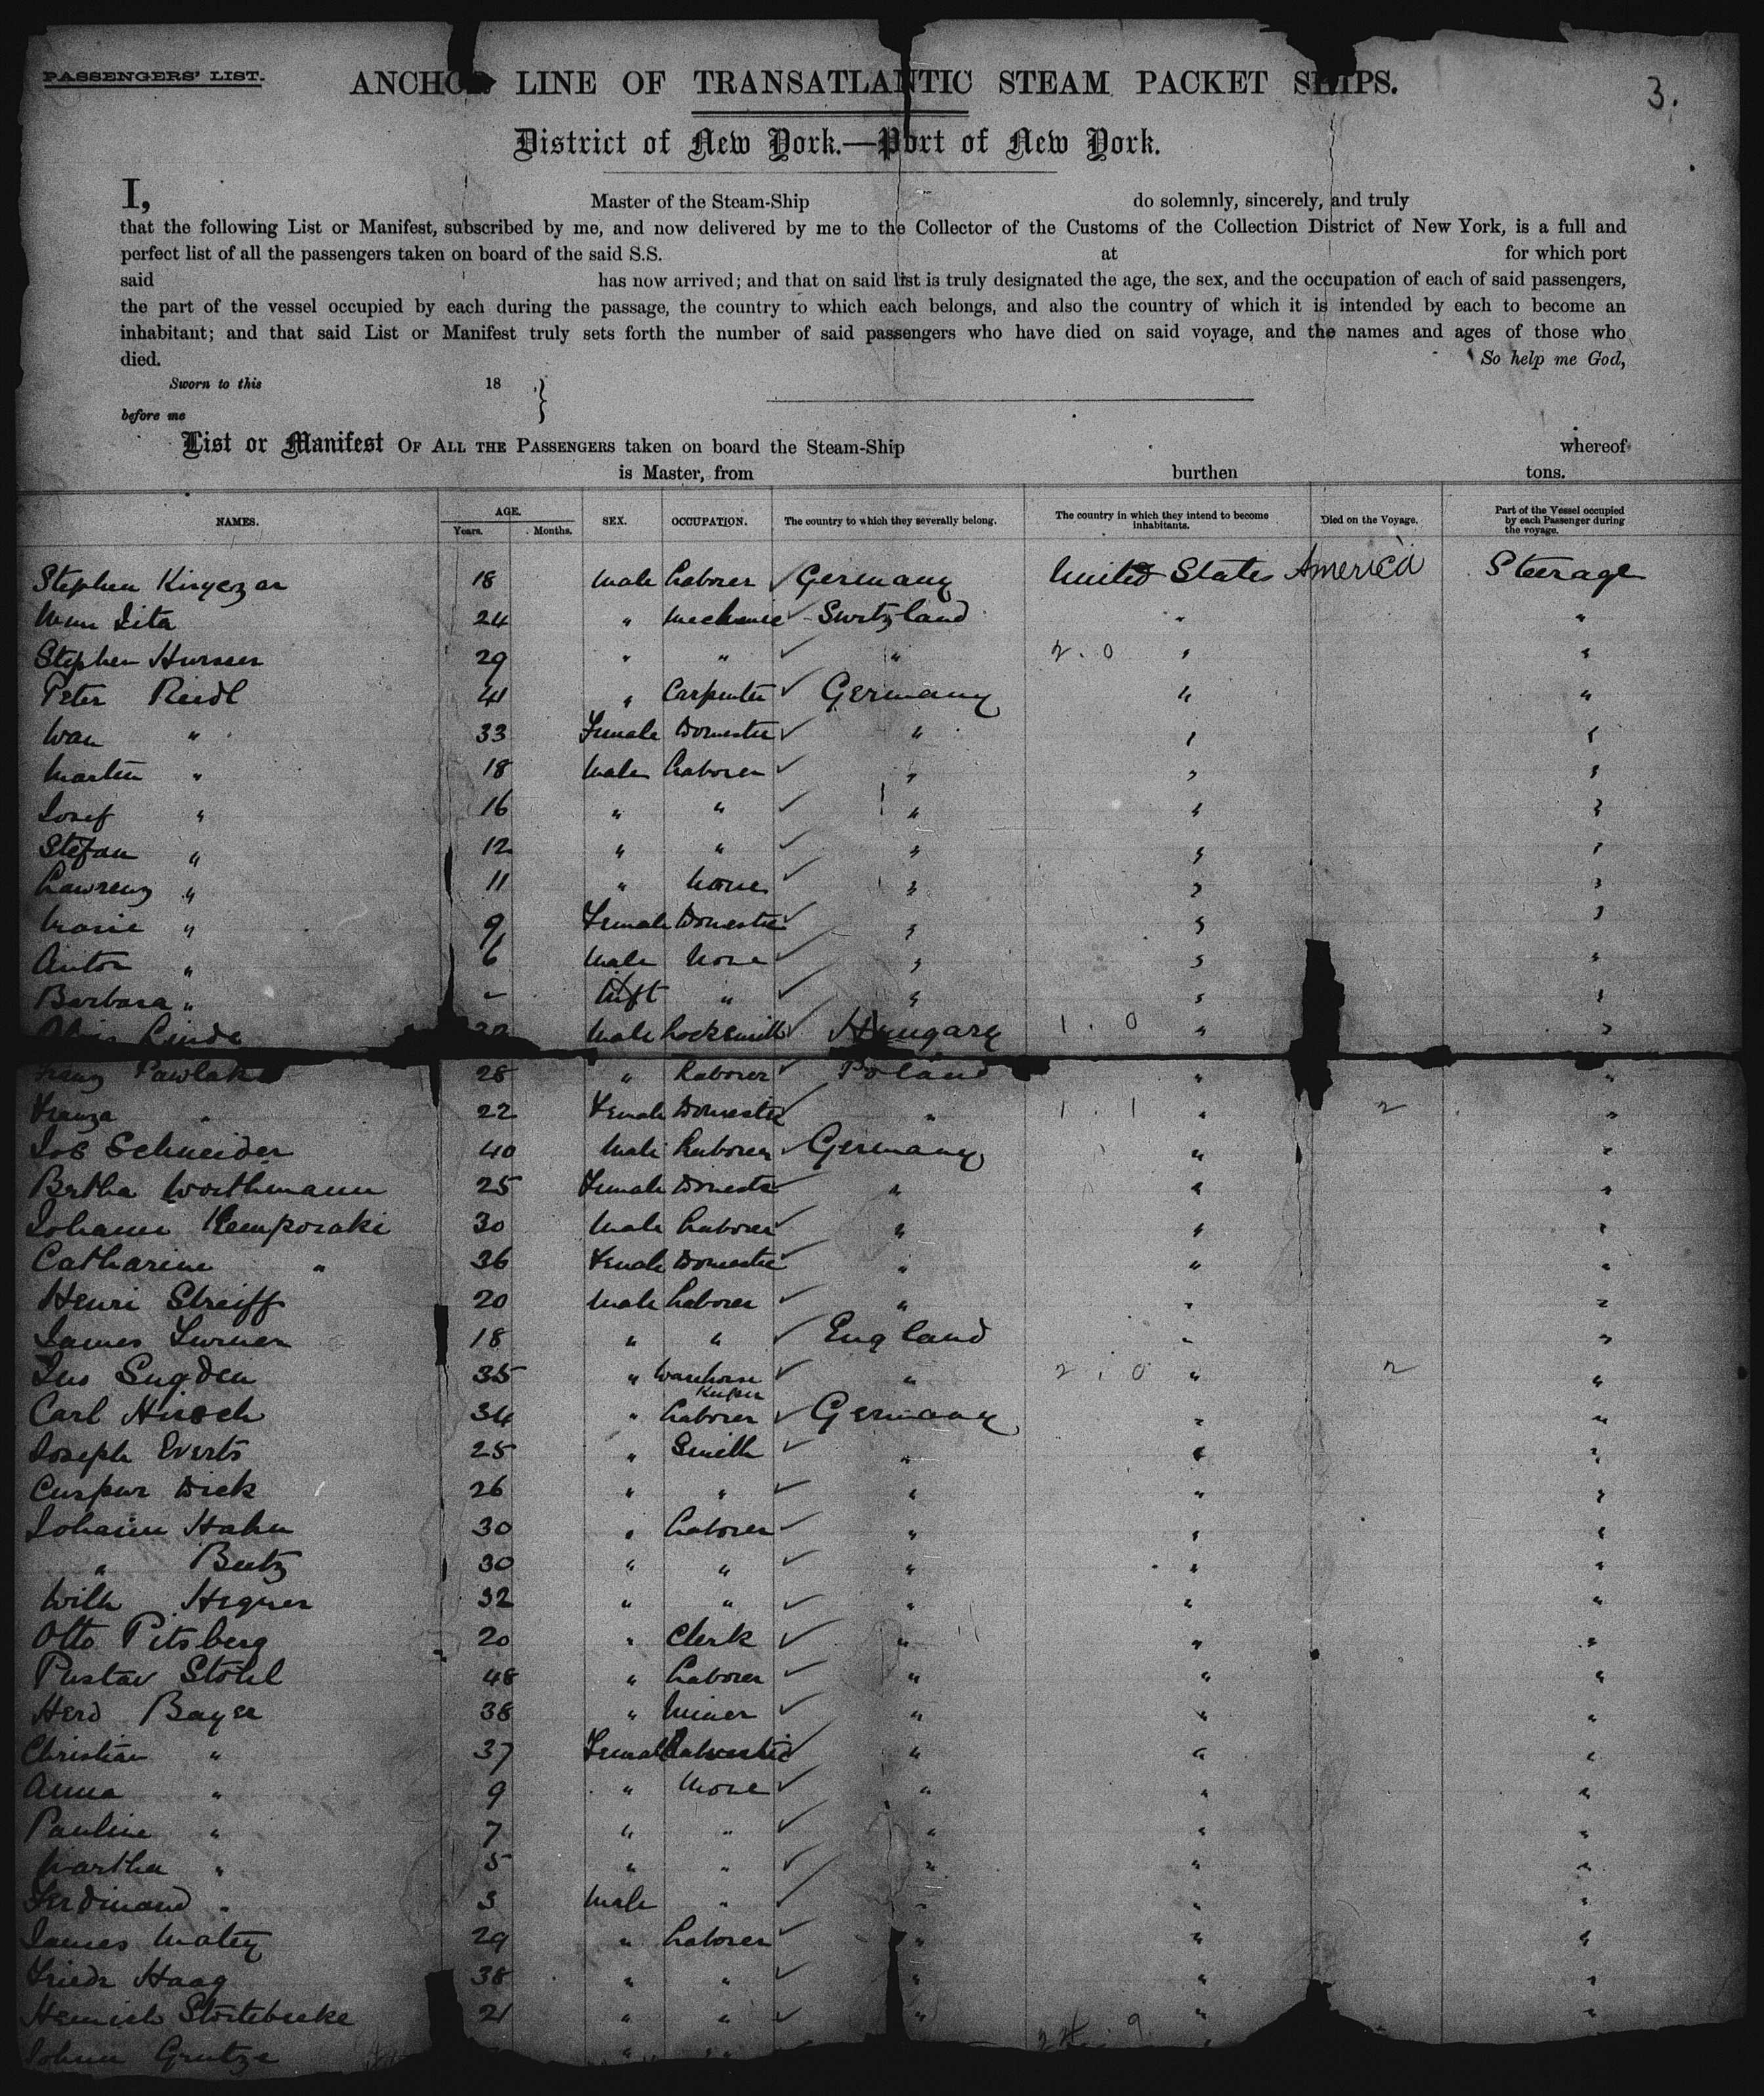 PASSENGERS' LIST.
3.
ANCHOR LINE OF TRANSATLANTIC STEAM PACKET SHIPS.
District of New York.—Port of New York.
I, Master of the Steam-Ship do solemnly, sincerely, and truly
that the following List or Manifest, subscribed by me, and now delivered by me to the Collector of the Customs of the Collection District of New York, is a full and
perfect list of all the passengers taken on board of the said S.S. at for which port
said has now arrived; and that on said list is truly designated the age, the sex, and the occupation of each of said passengers,
the part of the vessel occupied by each during the passage, the country to which each belongs, and also the country of which it is intended by each to become an
inhabitant; and that said List or Manifest truly sets forth the number of said passengers who have died on said voyage, and the names and ages of those who
died. So help me God,
Sworn to this 18
before me
List or Manifest OF ALL THE PASSENGERS taken on board the Steam-Ship whereof
is Master, from burthen tons.
NAMES. AGE. Years. Months. SEX. OCCUPATION. The country to which they severally belong. The country in which they intend to become inhabitants. Died on the Voyage. Part of the Vessel occupied by each Passenger during the voyage.
Stephen 18 Male Laborer ✓ Germany United States America Steerage
24 " Mechanic ✓ Switzland " "
Stephen 29 " " ✓ " 2.0 " "
Peter Reidl 41 " Carpenter ✓ Germany " "
" 33 Female Domestic ✓ " " "
Martin " 18 Male Laborer ✓ " " "
Josef " 16 " " ✓ " " "
Stefan " 12 " " ✓ " " "
Lawrenz " 11 " None ✓ " " "
Marie " 9 Female Domestic ✓ " " "
Anton " 6 Male None ✓ " " "
Barbara " - Inft " ✓ " " "
Linde Male Locksmith ✓ Hungary 1.0 " "
Franz Pawlak 28 " Laborer ✓ Poland " "
Franza " 22 Female Domestic ✓ " 1.1 " 2 "
Job Schneider 40 Male Laborer ✓ Germany " "
Bertha Worthmann 25 Female Domestic ✓ " " "
Johann 30 Male Laborer ✓ " " "
Catharine " 36 Female Domestic ✓ " " "
Henri Streiff 20 Male Laborer ✓ " " "
James Turner 18 " " ✓ England " "
Jno Sugden 35 " Warehouse Keeper ✓ " 2.0 " 2 "
Carl Hirsch 34 " Laborer ✓ Germany " "
Joseph Everts 25 " Smith ✓ " " "
Caspar Dick 26 " " ✓ " " "
Johann Hahn 30 " Laborer ✓ " " "
" Butz 30 " " ✓ " " "
Wilh Hegner 32 " " ✓ " " "
Otto Pitsberg 20 " Clerk ✓ " " "
Gustav Stohl 48 " Laborer ✓ " " "
Herd Bayer 38 " Miner ✓ " " "
Christian " 37 Female Domestic ✓ " " "
Anna " 9 " None ✓ " " "
Pauline " 7 " " ✓ " " "
Martha " 5 " " ✓ " " "
Ferdinand " 3 Male " ✓ " " "
James Maty 29 " Laborer ✓ " " "
Friedr Haag 38 " " ✓ " " "
Heinrich Stortebecke 21 " " ✓ " " "
Johann Grutze " "